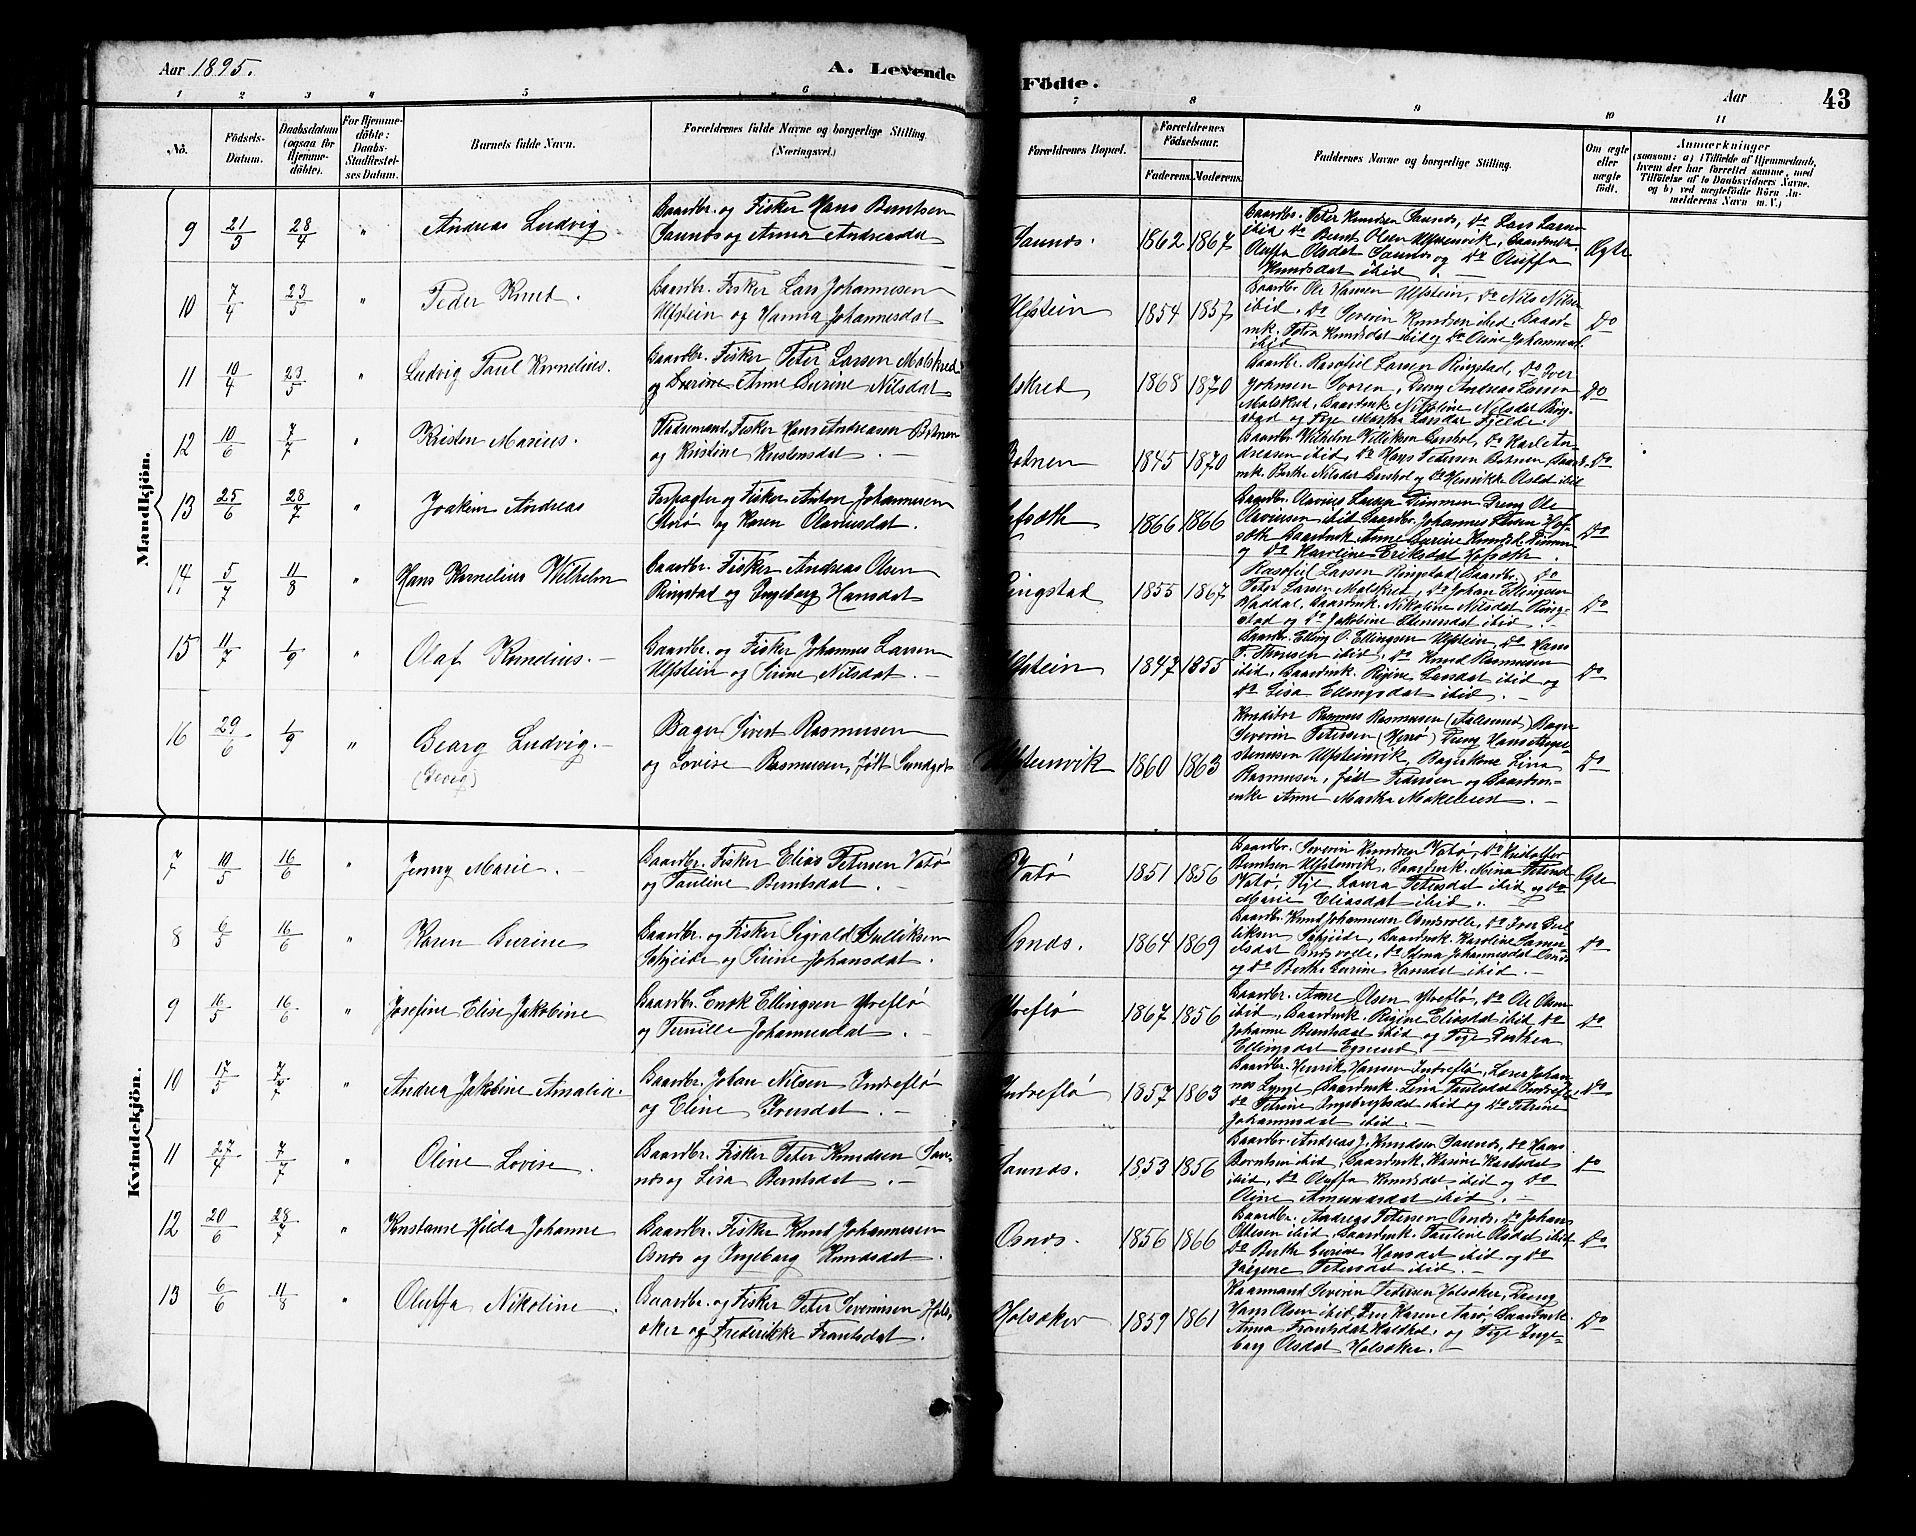 Aar 1895.
A. Levende
Födte.
Aar
43
1 2 3 4 5 6 7 8 9 10 11
No.
Födsels-
Datum.
Daabsdatum
(ogsaa för
Hjemme-
döbte).
For Hjemme-
döbte:
Daabs-
Stadfæstel-
ses Datum.
Barnets fulde Navn.
Forældrenes fulde Navne og borgerlige Stilling.
(Næringsvei.)
Forældrenes Bopæl.
Forældrenes
Födselsaar.
Faderens. Moderens.
Faddernes Navne og borgerlige Stilling.
Om ægte
eller
uægte
födt.
Anmærkninger
(saasom: a) i Tilfælde af Hjemmedaab,
hvem der har forrettet samme, med
Tilföielse af to Daabsvidners Navne,
og b) ved uægtefödte Börn An-
melderens Navn m. V.)
Mandkjön.
9 21/3 28/4 " Andreas Ludvig
Gaardbr. og Fisker Hans Berntsen
Saunæs og Anna Andreasdat
Saunæs. 1862 1867
Gaardbr. Peter Knudsen Saunæs, Do Lars Larsen
ibid Do Bernt Olsen Ulfsteinvik, Gaardmk.
Oluffa Olsdat Saunæs og Do Oluffa
Knudsdat ibid
Ægte
10 7/4 23/5 " Peder Knut.
Gaardbr. Fisker Lars Johannesen
Ulfstein og Hanna Johannesdat
Ulfstein 1854 1857
Gaardbr Ole Hansen Ulfstein, Do Nils Nilsen
ibid. Do Severin Knudsen ibid, Gaard-
mk. Petra Knudsdat ibid og Do Oline Johannesd.
ibid
Do
11 10/4 23/5 " Ludvig Paul Kornelius.
Gaardbr. Fisker Peter Larsen Malskred
og Gurine Anne Gurine Nilsdat
1868 1870
Gaardbr. Rasofiel Larsen Ringstad, Do Iver
Johnsen Svoren, Dreng Andreas Larsen
Malskred, Gaardmk Nikoline Nilsdat Ring-
stad og Pige Martha Larsdat Fjelde.
Do
12 10/6 7/7 " Kristen Marius.
Pladsemand, Fisker Hans Andreasen Botnen
og Kristine Kristensdat.
Botnen 1845 1870
Gaardbr Wilhelm Villiksen Garshol, Do Karl An-
dreasen ibid, Do Hans Pedersen Botnen, Gaard-
mk. Berthe Nilsdat Garshol og Do Henrikke Olsdat ibid
Do
13 25/6 28/7 " Joakim Andreas
Forpagter og Fisker Anton Johannesen
Storø og Karen Olavusdat.
Hofsæth 1866 1866
Do
14 5/7 11/8 " Hans Kornelius Wilhelm
Gaardbr. Fisker Andreas Olsen
Ringstad og Ingeborg Hansdat
Ringstad 1855 1867
Rasofiel Larsen Ringstad (Gaardbr.) Do
Peter Larsen Malskred, Do Johan Ellingsen
Haddal, Gaardmk. Nikoline Nilsdat Ring-
stad og Do Jakobine Ednesdat ibid.
Do
15 11/7 1/9 " Olaf Kornelius.
Gaardbr. og Fisker Johannes Larsen
Ulfstein og Sirine Nilsdat.
Ulfstein 1847 1855
Gaardbr. Elling O. Ellingsen Ulfstein, Do Hans
P. Thoresen ibid, Do Knud Rasmussen
ibid, Gaardmk. Regine Larsdat ibid og
Do Lisa Ellingsdat ibid.
Do
16 29/6 1/9 " Georg Ludvig.
Bager Sivert Rasmussen
og Lovise Rasmussen, født Sundgot
Ulfsteinvik 1860 1863
Konditor Rasmus Rasmussen (Aalesund) Bager
Severin Petersen (Herø) Dreng Hans
Ulfsteinvik, Bagerkone Lina
Rasmussen, født Pedersen og Gaardman-
enke Anne Martha
Do
Kvindekjön.
7 10/5 16/6 " Jenny Marie.
Gaardbr. Fisker Elias Petersen Vatø
og Pauline Berntsdat.
Vatø 1851 1856
Gaardbr. Severin Knudsen Vatø, Do Kristoffer
Berntsen Ulfsteinvik, Gaardmk. Mina Petersd.
Vatø, Pige Laura Petersdat ibid og Do
Marie Eliasdat ibid.
Ægte
8 6/5 16/6 " Karen Gurine
Gaardbr. og Fisker Sigvald Gulliksen
og Sirine Johansdat.
Osnæs. 1864 1869
Gaardbr. Knud Johannesen Osnæsvolle, Do Iver Gul-
liksen, Gaardmk. Karoline Samu-
elsdat Osnæsvolle, Do Johannesdat Osnæs
og Do Berthe Gurine Hansdat ibid.
Do
9 16/5 16/6 " Josefine Elise Jakobine
Gaardbr. Enok Ellingsen Ytreflø
og Pernille Johannesdat.
Ytreflø 1867 1856
Gaardbr. Arne Olsen Ytreflø, Do Ole Olsen
ibid, Gaardmk. Regine Eliasdat ibid Do
Johanne Berntsdat ibid og Pige Dorthea
Ellingsdat Egsund.
Do
10 17/5 7/7 " Andrea Jakobine Amalia.
Gaardbr. Johan Nilsen Indreflø
og Eline Iversdat.
Indreflø 1857 1863
Gaardbr. Henrik Hansen Indreflø, Lærer Johan-
nes Lynge Gaardmk. Lina Paulsdat Indreflø,
Do Petrine Ingebrigtsdat ibid og Do Petrine
Johannesdat ibid.
Do
11 27/4 7/7 " Oline Lovise.
Gaardbr. Fisker Peter Knudsen Sau-
næs og Lisa Berntsdat.
Saunæs. 1853 1856
Gaardbr. Andreas J. Knudsen Saunæs, Do Hans
Berntsen ibid, Gaardmk. Karine Karlsdat
ibid, Do Oluffa Knudsdat ibid og Do
Oline Amundsdat ibid.
Do
12 20/6 28/7 Konstanse Hilda Johanne
Gaardbr. Fisker Knud Johannesen
Osnæs og Ingeborg Knudsdat.
Osnæs. 1856 1866
Gaardbr. Andreas Petersen Osnæs. Do Johans
Ottesen ibid, Gaardmk. Pauline Olsdat ibid
Do Berthe Gurine Hansdat ibid og Do
Petersdat ibid.
Do
13 6/6 11/8 " Oluffa Nikoline.
Gaardbr. og Fisker Peter Severinsen Hols-
øker og Frederikke Frantsdat.
Holsøker 1859 1861
Kaarmand Severin Pedersen Holsøker, Dreng
Hans Olsen ibid, Fru Karen Aarø, Gaardmk.
Anna Frantsdat og Pige Inge-
borg Olsdat Holsøker.
Do